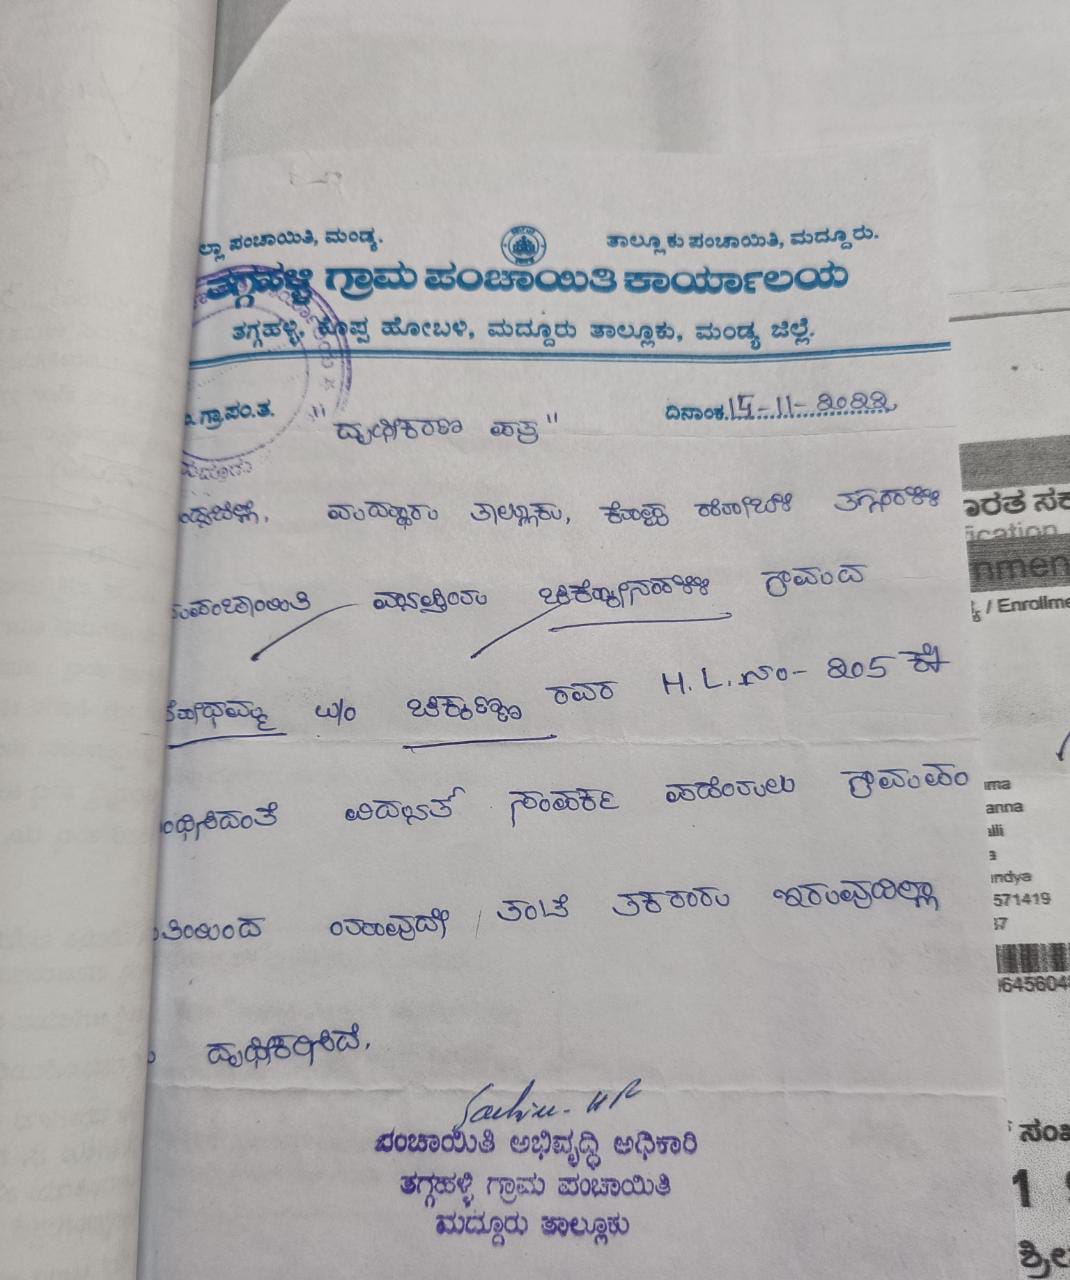 ಲ್ಲಾ ಪಂಚಾಯಿತಿ, ಮಂಡ್ಯ. ತಾಲ್ಲೂಕು ಪಂಚಾಯಿತಿ, ಮದ್ದೂರು.
ತಗ್ಗಹಳ್ಳಿ ಗ್ರಾಮ ಪಂಚಾಯಿತಿ ಕಾರ್ಯಾಲಯ
ತಗ್ಗಹಳ್ಳಿ, ಕೊಪ್ಪ ಹೋಬಳಿ, ಮದ್ದೂರು ತಾಲ್ಲೂಕು, ಮಂಡ್ಯ ಜಿಲ್ಲೆ.
ಗ್ರಾ.ಪಂ.ತ. ದಿನಾಂಕ 15-11-2022
"ದೃಢೀಕರಣ ಪತ್ರ"
ಮದ್ದೂರು ತಾಲ್ಲೂಕು, ಕೊಪ್ಪ ಹೋಬಳಿ ತಗ್ಗಹಳ್ಳಿ
ಪಂಚಾಯಿತಿ ವ್ಯಾಪ್ತಿಯ ಚಿಕ್ಕೋನಹಳ್ಳಿ ಗ್ರಾಮದ
W/o ಚಿಕ್ಕಣ್ಣ ರವರ H.L.ನಂ- 205 ಕ್ಕೆ
ಂಧಿಸಿದಂತೆ ವಿದ್ಯುತ್ ಸಂಪರ್ಕ ಪಡೆಯಲು ಗ್ರಾಮಪಂ
ತಿಯಿಂದ ಯಾವುದೇ ತಂಟೆ ತಕರಾರು ಇರುವುದಿಲ್ಲಾ
ದೃಢೀಕರಿಸಿದೆ.
ಪಂಚಾಯಿತಿ ಅಭಿವೃದ್ಧಿ ಅಧಿಕಾರಿ
ತಗ್ಗಹಳ್ಳಿ ಗ್ರಾಮ ಪಂಚಾಯಿತಿ
ಮದ್ದೂರು ತಾಲ್ಲೂಕು
ಾರತ ಸರ
ication
nmen
/ Enrollme
ma
anna
alli
a
indya
571419
37